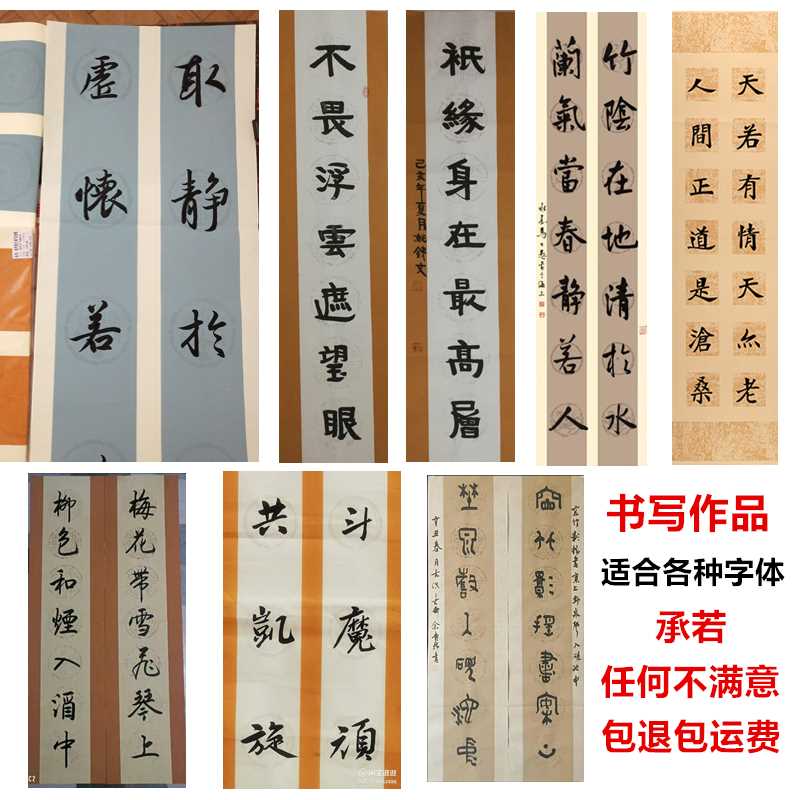 取静於
虚懷若
不畏浮雲遮望眼
衹緣身在最高層
己亥年夏月
竹陰在地清於水
蘭氣當春静若人
天若有情天亦老
人間正道是滄桑
梅花帶雪飛琴上
柳色和煙入酒中
斗魔頑
共凱旋
窗竹影摇書案上
野泉聲入硯池中
辛丑春月
书写作品
适合各种字体
承若
任何不满意
包退包运费